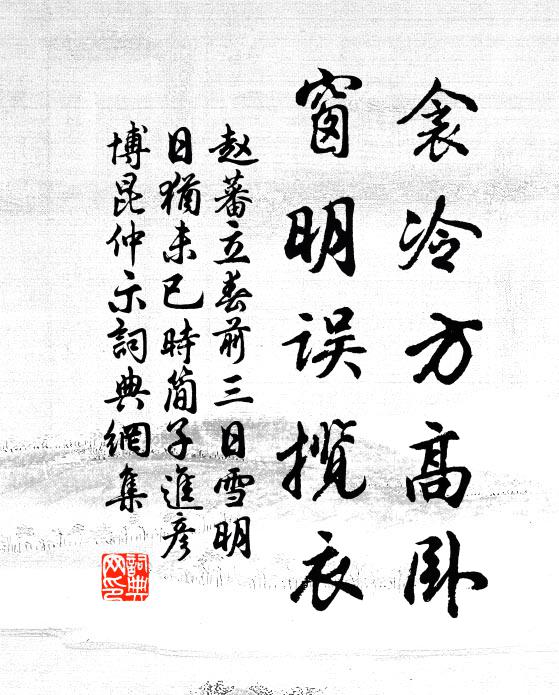 衾冷方高卧
窗明误揽衣
赵蕃立春前三日雪明
日猶未已時简子進彦
博昆仲示詞典網集
詞典
网印